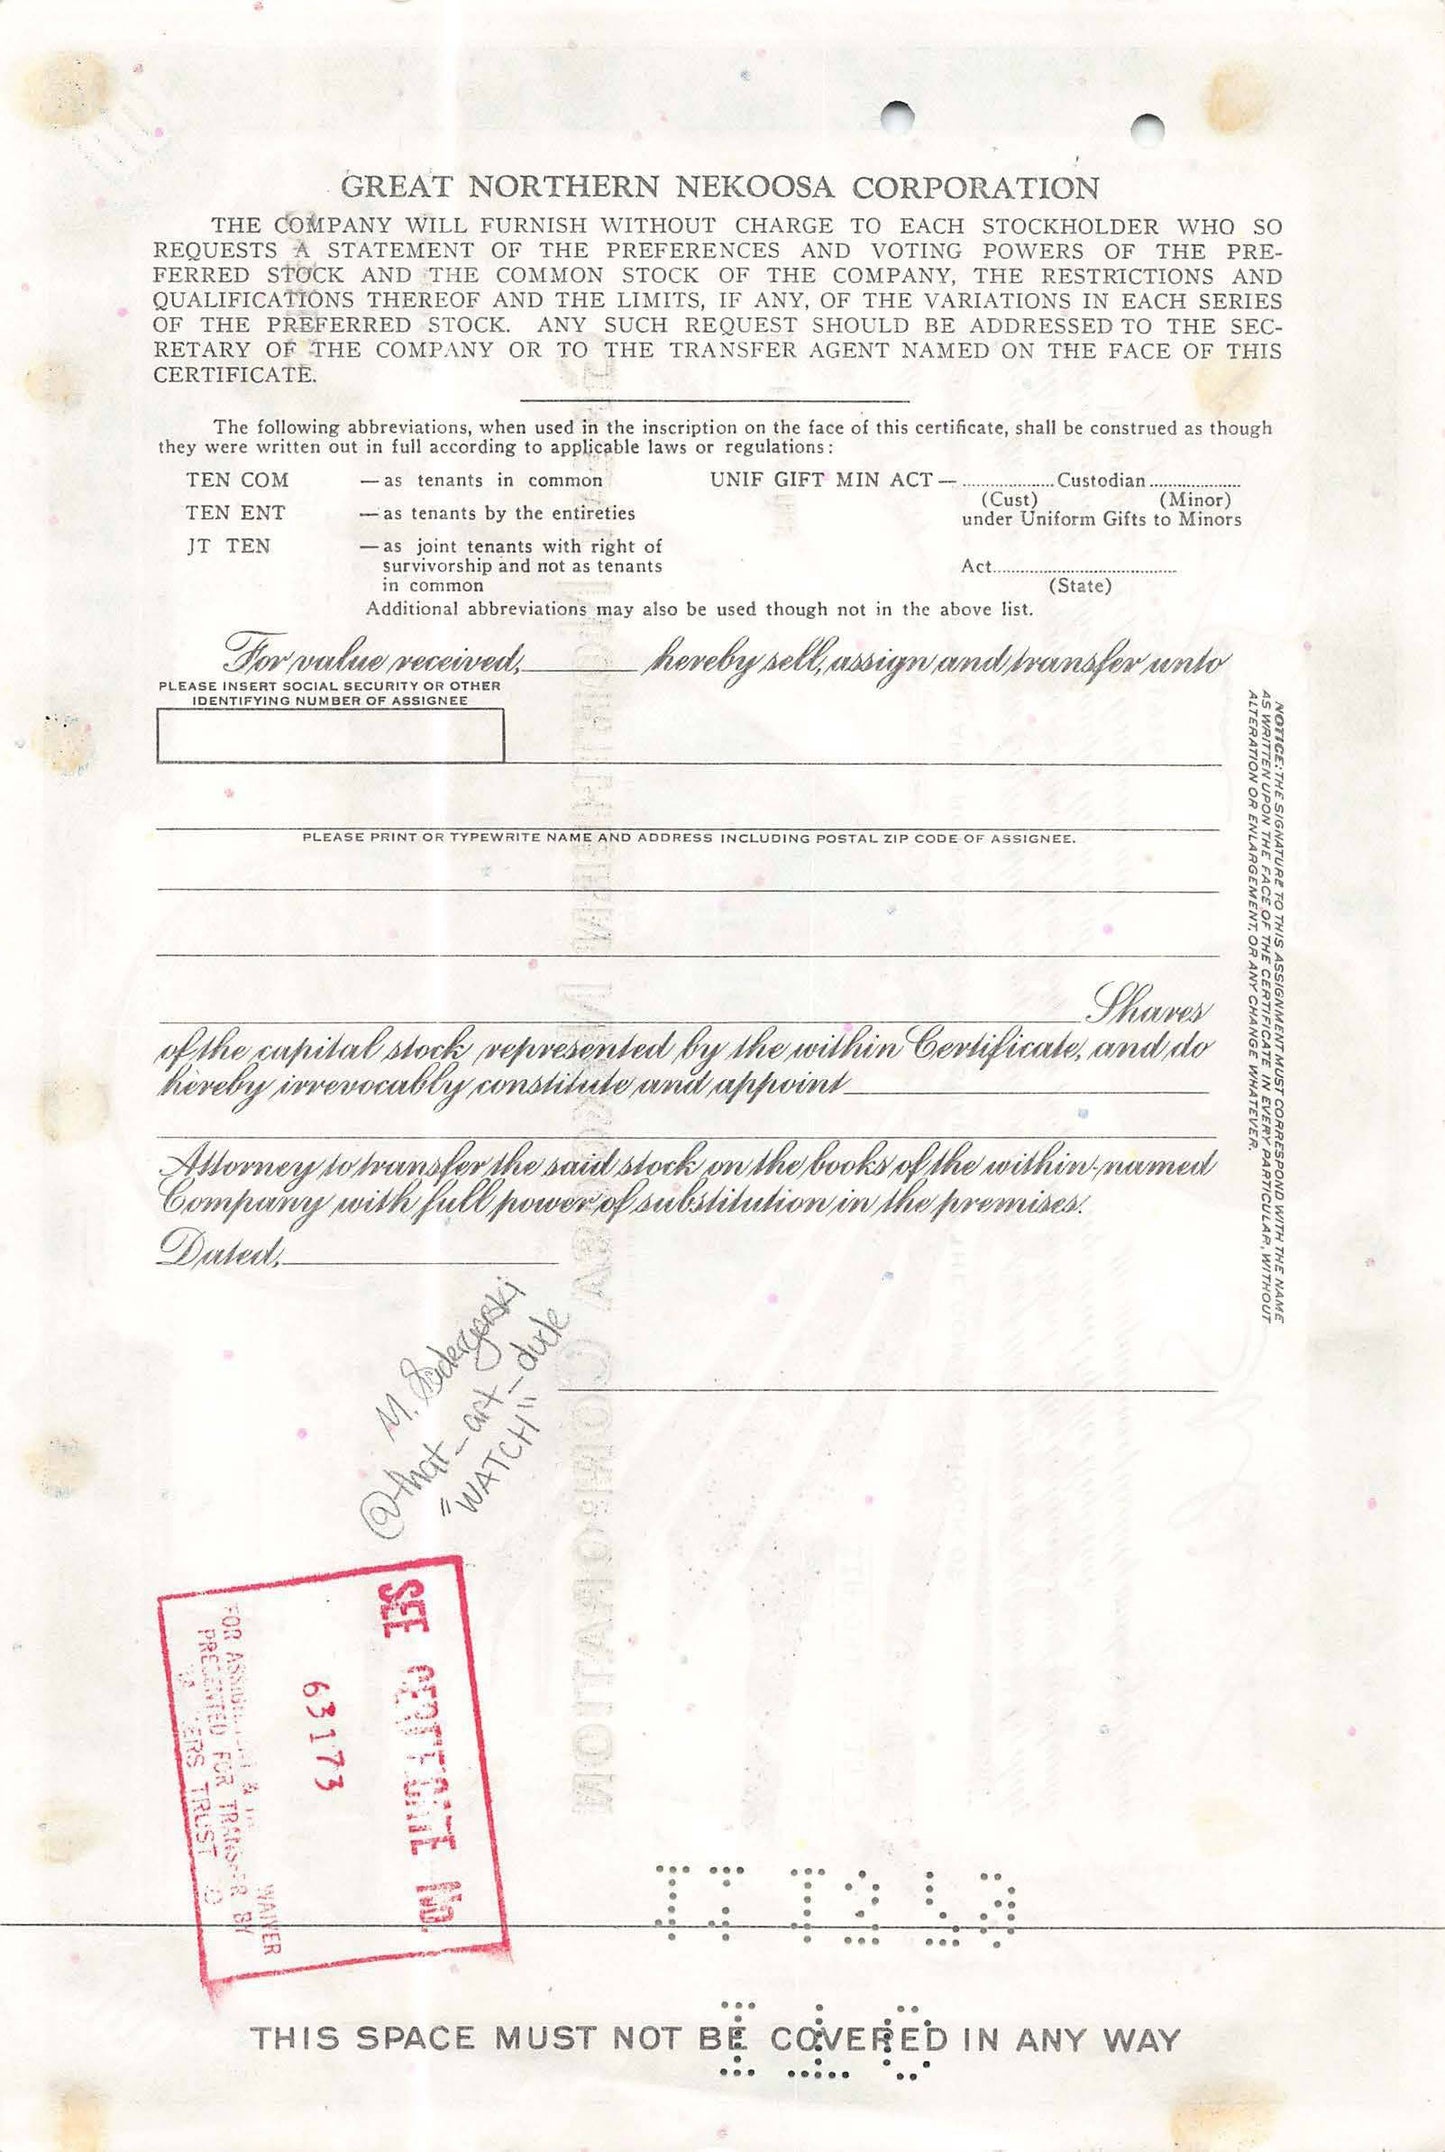 GREAT NORTHERN NEKOOSA CORPORATION
THE COMPANY WILL FURNISH WITHOUT CHARGE TO EACH STOCKHOLDER WHO SO
REQUESTS A STATEMENT OF THE PREFERENCES AND VOTING POWERS OF THE PRE-
FERRED STOCK AND THE COMMON STOCK OF THE COMPANY, THE RESTRICTIONS AND
QUALIFICATIONS THEREOF AND THE LIMITS, IF ANY, OF THE VARIATIONS IN EACH SERIES
OF THE PREFERRED STOCK. ANY SUCH REQUEST SHOULD BE ADDRESSED TO THE SEC-
RETARY OF THE COMPANY OR TO THE TRANSFER AGENT NAMED ON THE FACE OF THIS
CERTIFICATE.
The following abbreviations, when used in the inscription on the face of this certificate, shall be construed as though
they were written out in full according to applicable laws or regulations:
TEN COM —as tenants in common
TEN ENT —as tenants by the entireties
JT TEN —as joint tenants with right of
survivorship and not as tenants
in common
UNIF GIFT MIN ACT— ...................Custodian...................
(Cust) (Minor)
under Uniform Gifts to Minors
Act......................................
(State)
Additional abbreviations may also be used though not in the above list.
For value received, __________ hereby sell, assign and transfer unto
PLEASE INSERT SOCIAL SECURITY OR OTHER
IDENTIFYING NUMBER OF ASSIGNEE
PLEASE PRINT OR TYPEWRITE NAME AND ADDRESS INCLUDING POSTAL ZIP CODE OF ASSIGNEE.
Shares
of the capital stock represented by the within Certificate, and do
hereby irrevocably constitute and appoint
Attorney to transfer the said stock on the books of the within-named
Company with full power of substitution in the premises.
Dated,
NOTICE: THE SIGNATURE TO THIS ASSIGNMENT MUST CORRESPOND WITH THE NAME
AS WRITTEN UPON THE FACE OF THE CERTIFICATE IN EVERY PARTICULAR, WITHOUT
ALTERATION OR ENLARGEMENT, OR ANY CHANGE WHATEVER.
M.
@that_art_dude
"WATCH"
SEE CERTIFICATE NO.
63173
WAIVER
PRESENTED FOR TRANSFER BY
TRUST
THIS SPACE MUST NOT BE COVERED IN ANY WAY